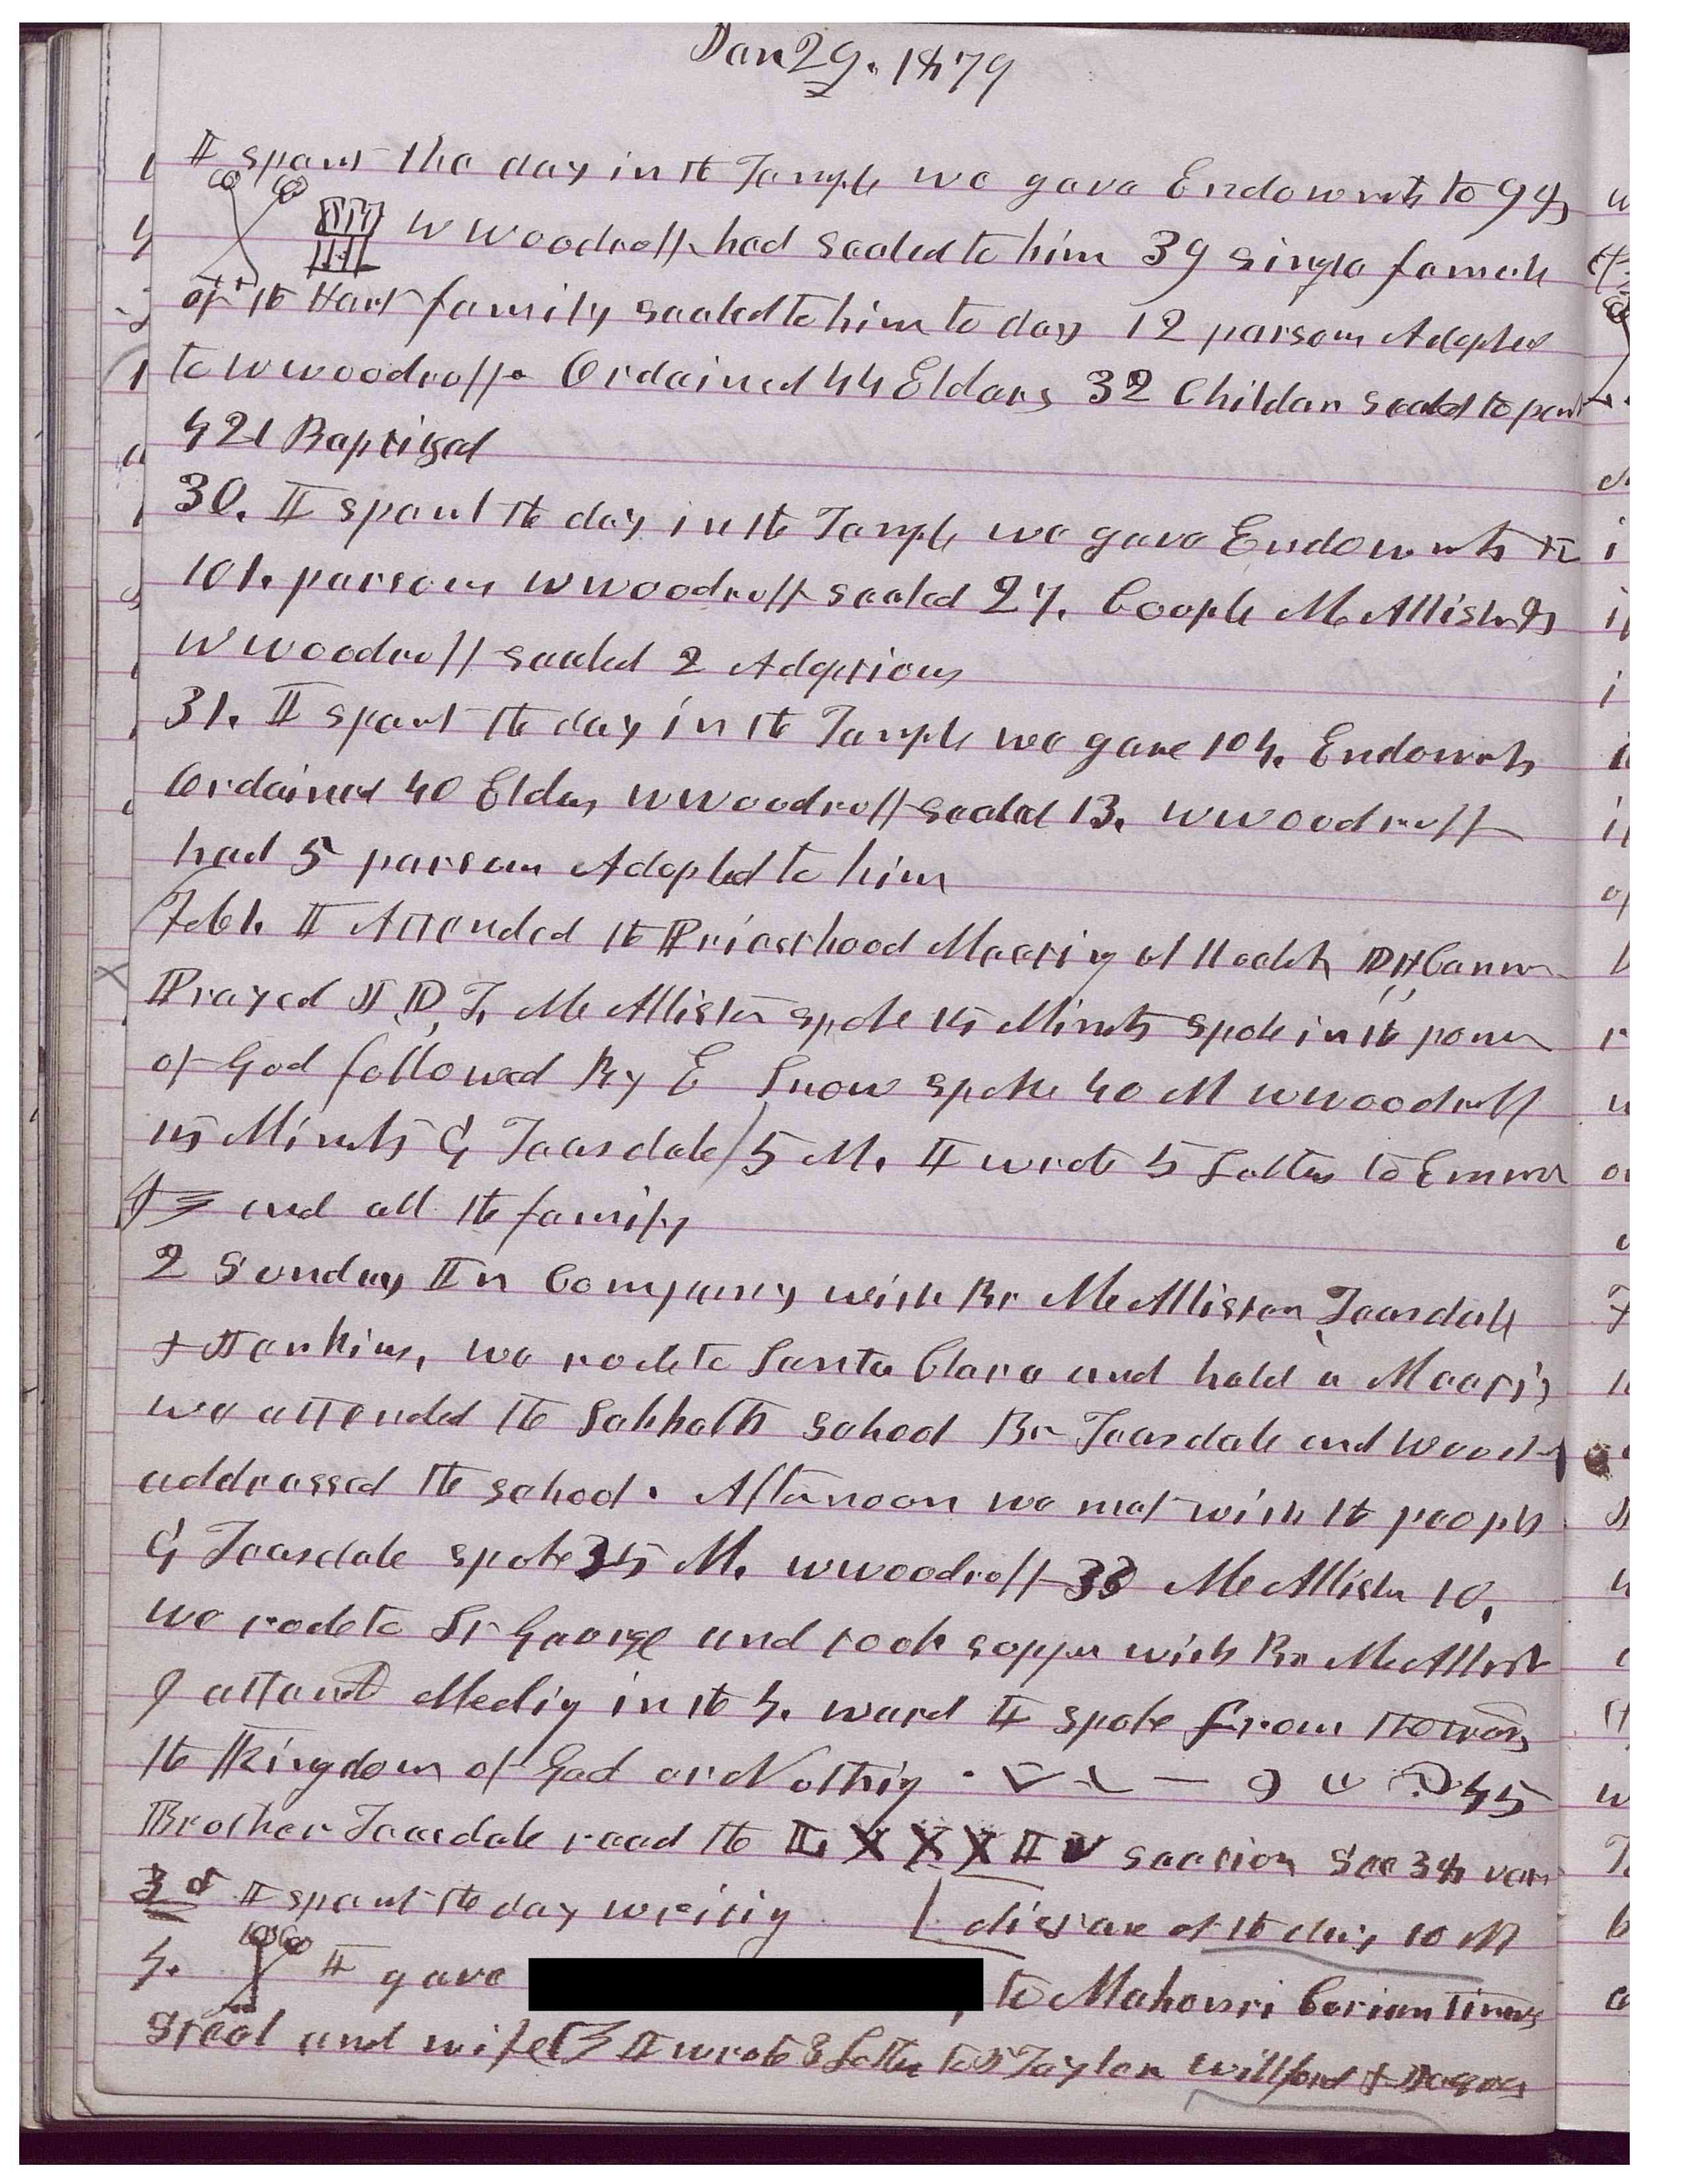 Jan 29. 1879
I spent the day in the Temple we gave Endowmts to 94
W Woodruff had sealed to him 39 single female
of the Hart family sealed to him to day 12 persons Adopted
to W Woodruff. Ordained 44 Elders 32 Childen sealed to parents
421 Baptised
30. I spent the day in the Temple we gave Endowmts to
101. persons W Woodruff sealed 27. Couple McAllister
W Woodruff sealed 2 Adoptions
31. I spent the day in the Temple we gave 104. Endowmts
Ordained 40 Elders W Woodruff sealed 13. W Woodruff
had 5 persons Adopted to him
Feb 1. I Attended the Priesthood Meeting D H Cannon
Prayed J. D. T. McAllister spoke 15 Minuts spoke in the power
of God followed By E Snow spoke 40 M W Woodruff
15 Minuts G Teasdale 15 M. I wrote 5 Letters to Emma
and all the family
2 Sunday In Company with Br McAllister Teasdale
+ we rode to Santa Clara and held a Meeting
we attended the Sabbath school Br Teasdale and Woodruff
addressed the school. Afternoon we met with the people
G Teasdale spoke 35 M. W Woodruff 33 McAllister 10.
we rode to St George and took supper with Br McAllister
I attend Meeting in the 4. ward I spoke from the words
the Kingdom of God or Nothing. 45
Brother Teasdale read the
3d I spent the day writing
4. I gave , to Mahonri Coriantimus
Steel and wife I wrote 3 Letter to J Taylor Willford +